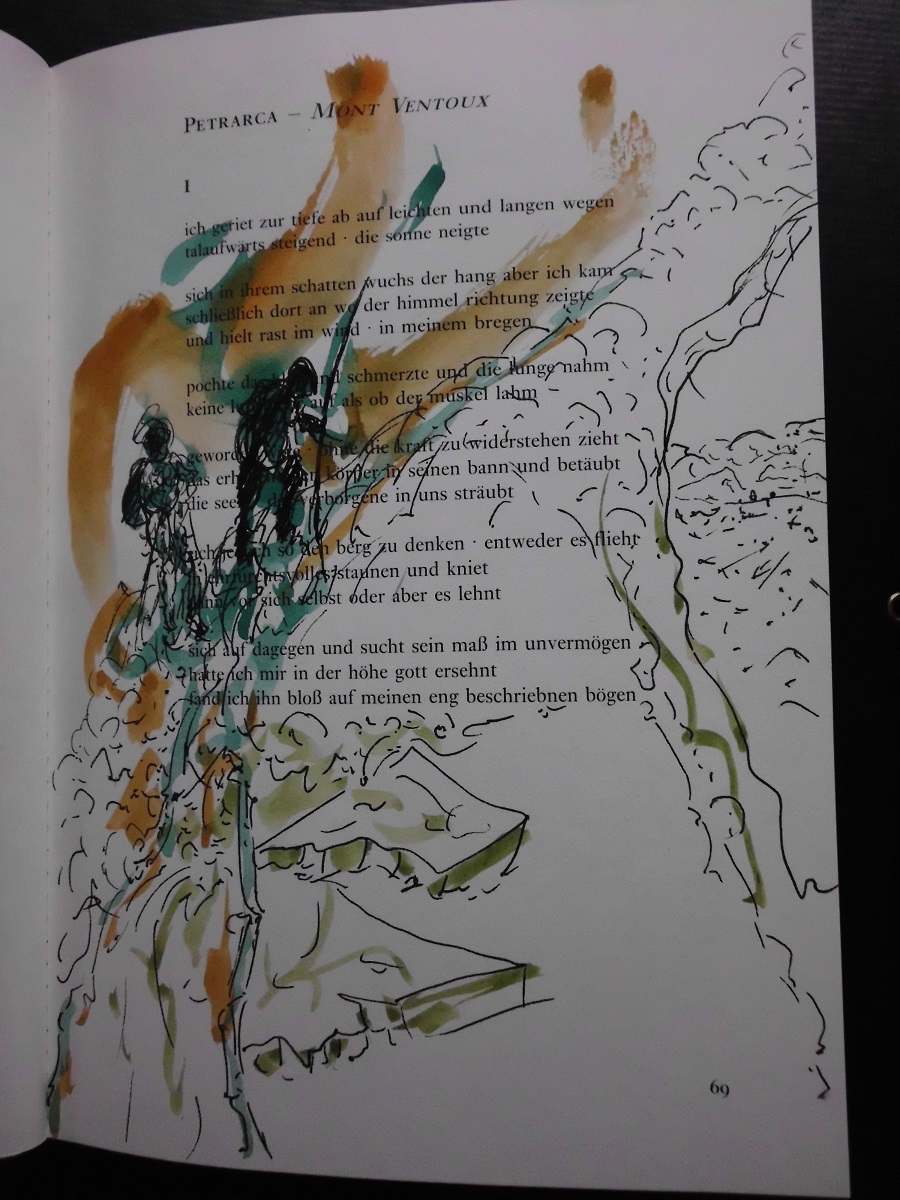 PETRARCA – MONT VENTOUX
I
ich geriet zur tiefe ab auf leichten und langen wegen
talaufwärts steigend · die sonne neigte
sich in ihrem schatten wuchs der hang aber ich kam
schließlich dort an wo der himmel richtung zeigte
und hielt rast im wind · in meinem bregen
pochte das und schmerzte und die lunge nahm
keine auf als ob der muskel lahm
ohne die kraft zu widerstehen zieht
das körper in seinen bann und betäubt
die verborgene in uns sträubt
so den berg zu denken · entweder es flieht
ehrfurchtsvolles staunen und kniet
dann vor sich selbst oder aber es lehnt
sich auf dagegen und sucht sein maß im unvermögen
hatte ich mir in der höhe gott ersehnt
fand ich ihn bloß auf meinen eng beschriebnen bögen
69